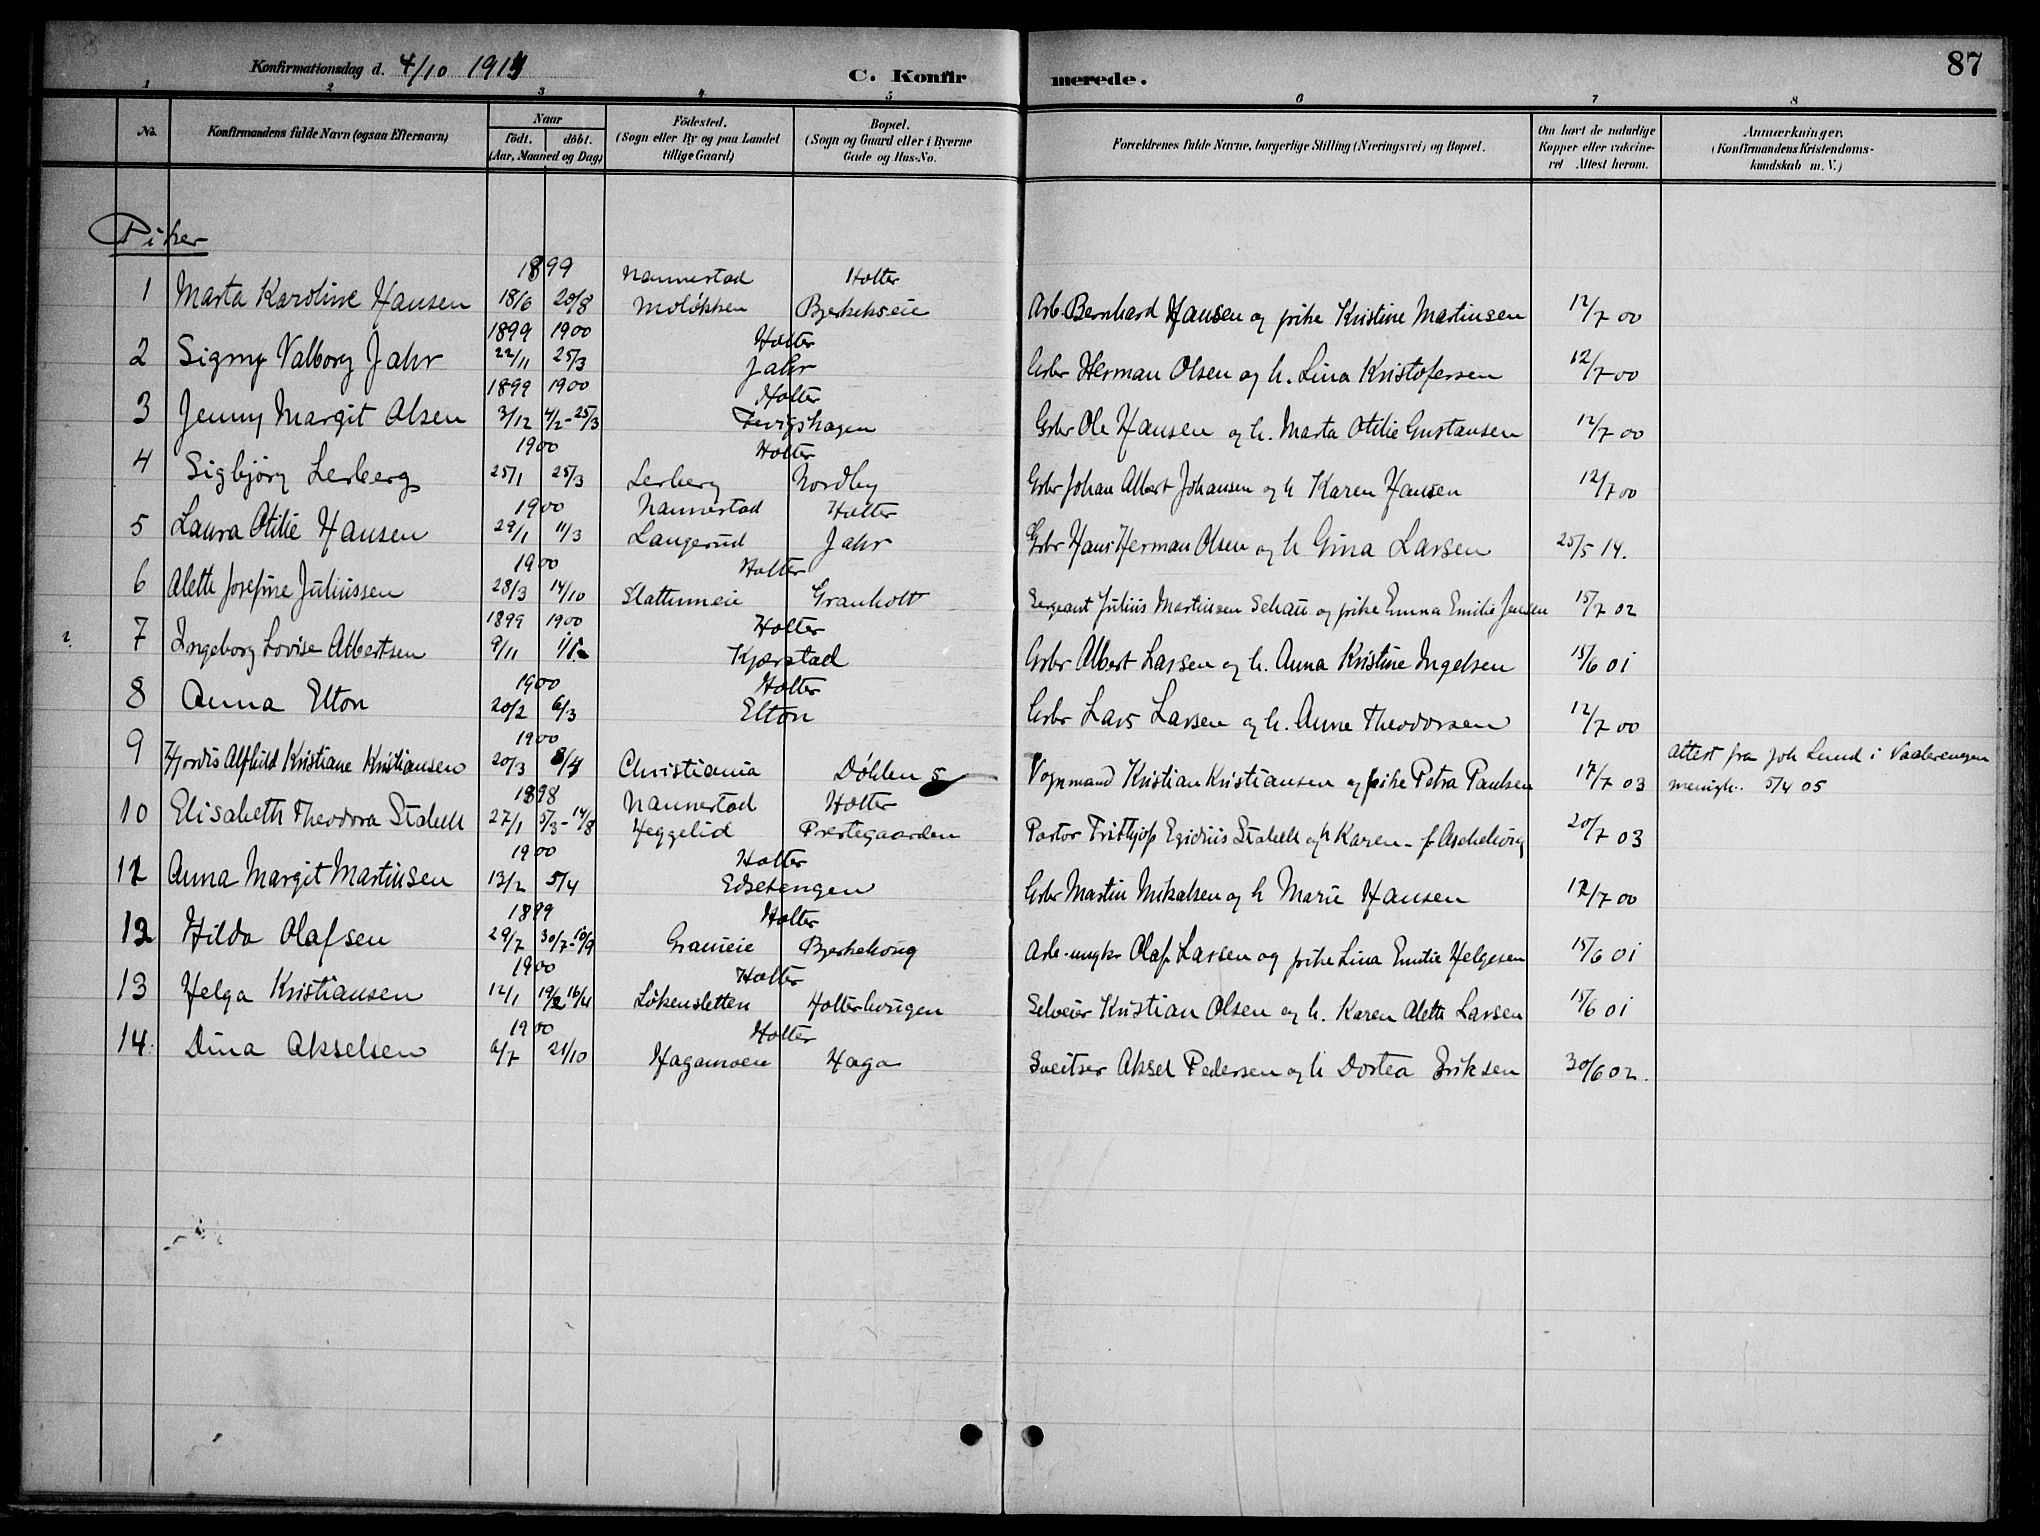 87
Konfirmationsdag d. 4/10 1914 C. Konfirmerede.
1 2 3 4 5 6 7 8
No. Konfirmandens fulde Navn (ogsaa Efternavn) Naar födt. döbt. (Aar, Maaned og Dag) Födested. (Sogn eller By og paa Landet tillige Gaard) Bopæl. (Sogn og Gaard eller i Byerne Gade og Hus-No. Forældrenes fulde Navne, borgerlige Stilling (Næringsvei) og Bopæl. Om havt de naturlige Kopper eller vakcineret Attest herom. Anmærkninger. (Konfirmandens Kristendomskundskab m. V.)
Piker
1899 Nannestad Holter
1 Marta Karoline Hansen 18/6 20/8 Moløkken Bjerkekseie Arb. Bernhard Hansen og pike Kristine Martinsen 12/7 00
1899 1900 Holter
2 Signy Valborg Jahr 22/11 25/3 Jahr Gbr Herman Olsen og h. Lina Kristofersen 12/7 00
1899 1900 Holter
3 Jenny Margit Olsen 3/12 4/2-25/3 Gbr Ole Hansen og h. Marta Otilie Gustavsen 12/7 00
1900 Holter
4 Sigbjørg Lerberg 25/1 25/3 Lerberg Nordby Gbr Johan Albert Johansen og h Karen Hansen 12/7 00
1900 Nannestad Holter
5 Laura Otilie Hansen 29/1 11/3 Langerud Jahr Gbr Hans Herman Olsen og h Gina Larsen 25/5 14.
1900 Holter
6 Alette Josefine Juliussen 28/3 14/10 Slattumeie Granholt Sergeant Julius Martinsen Schau og pike Emma Emilie Jensen 15/7 02
1899 1900 Holter
7 Ingeborg Lovise Albertsen 9/11 1/1 Kjærstad Gbr Albert Larsen og h. Anna Kristine Ingelsen 15/6 01
1900 Holter
8 Anna Elton 20/2 6/3 Elton Gbr Lars Larsen og h. Anne Theodorsen 12/7 00
1900
9 Hjørdis Alfhild Kristiane Kristiansen 20/3 8/4 Christiania Døhlen Vognmand Kristian Kristiansen og pike Petra Paulsen 17/7 03 Attest fra Joh Lund i Vaalerengen menigh. 5/4 05
1898 Nannestad Holter
10 Elisabeth Theodora Stabell 27/1 5/3-14/8 Heggelid Prestegaarden Pastor Frithjof Egidius Stabell og h Karen f. Aschehoug 20/7 03
1900 Holter
11 Anna Margit Martinsen 13/2 5/4 Edsetangen Gbr Martin Mikalsen og h Marie Hansen 12/7 00
1899 Holter
12 Hilda Olafsen 29/7 30/7-10/9 Graneie Bjerkehoug Arb. ungkr Olaf Larsen og pike Lina Emilie Helgesen 15/6 01
1900 Holter
13 Helga Kristiansen 12/1 19/2 16/4 Løkensletten Holterhougen Selveier Kristian Olsen og h. Karen Alette Larsen 15/6 01
1900 Holter
14. Dina Akselsen 6/7 21/10 Hagamoen Haga Sveitser Aksel Pedersen og h Dortea Eriksen 30/6 02.